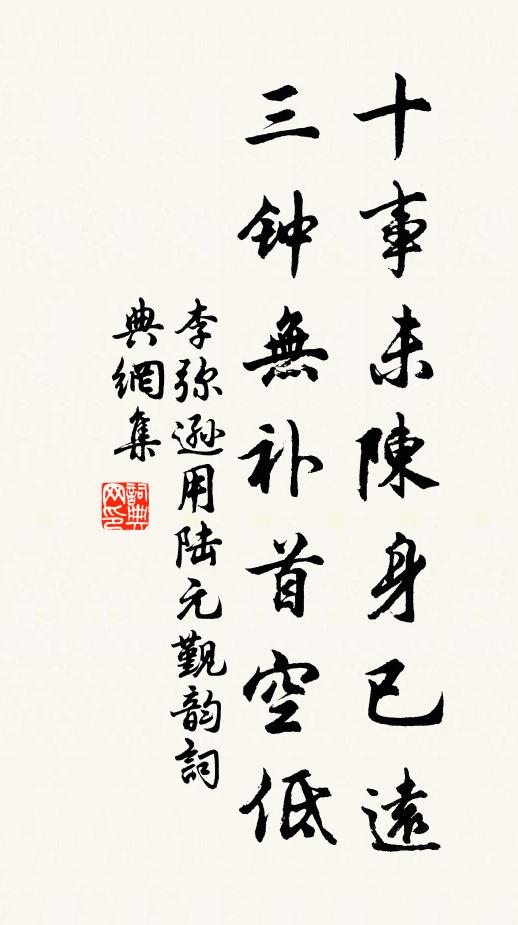 十事未陳身已遠
三钟無补首空低
李弥遜用陆元觐韵詞
典網集
詞典
网印